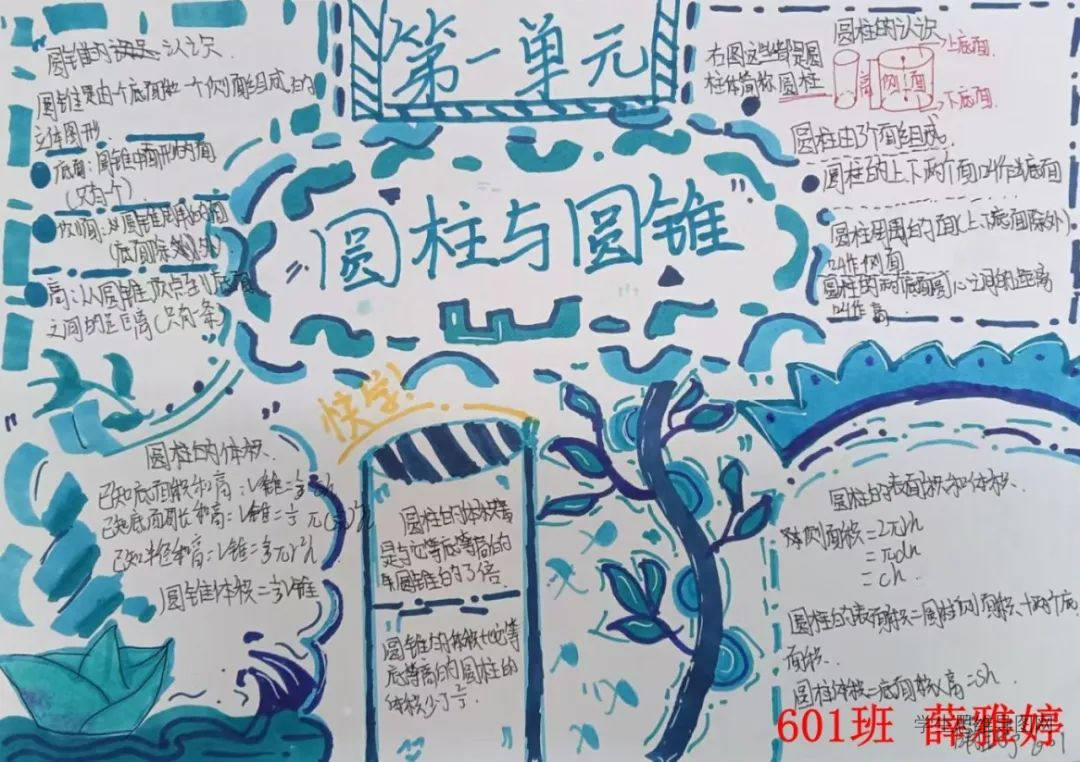 第一单元
圆柱与圆锥
圆锥的认识
圆锥是由一个底面和一个侧面组成的
立体图形.
底面:圆锥中圆形的面
(只有一个)
(底面除外)
高:从圆锥顶点到底面
之间的距离(只有一条)
右图这些都是圆
柱体简称圆柱
圆柱的认识
上底面.
高
侧面
下底面.
圆柱由3个面组成.
圆柱的上、下两个面叫作底面
圆柱周围的面(上、下底面除外)
叫作侧面
圆柱的两个底面圆心之间的距离
叫作高.
快学!
圆柱的体积.
已知底面积和高:V锥=⅓sh
已知底面周长和高=V锥=⅓π
已知半径和高=V锥=⅓πr²h
圆锥体积=
圆柱的体积
是与它等底等高的
圆锥的3倍.
圆锥的体积比它等
底等高的圆柱的
体积少⅔
圆柱的表面积和体积.
侧面积=2πrh
=πdh
=ch.
圆柱的表面积=圆柱侧面积+两个底
面积.
圆柱体积=底面积×高=sh
601班 薛雅婷
学生思维导图网
601